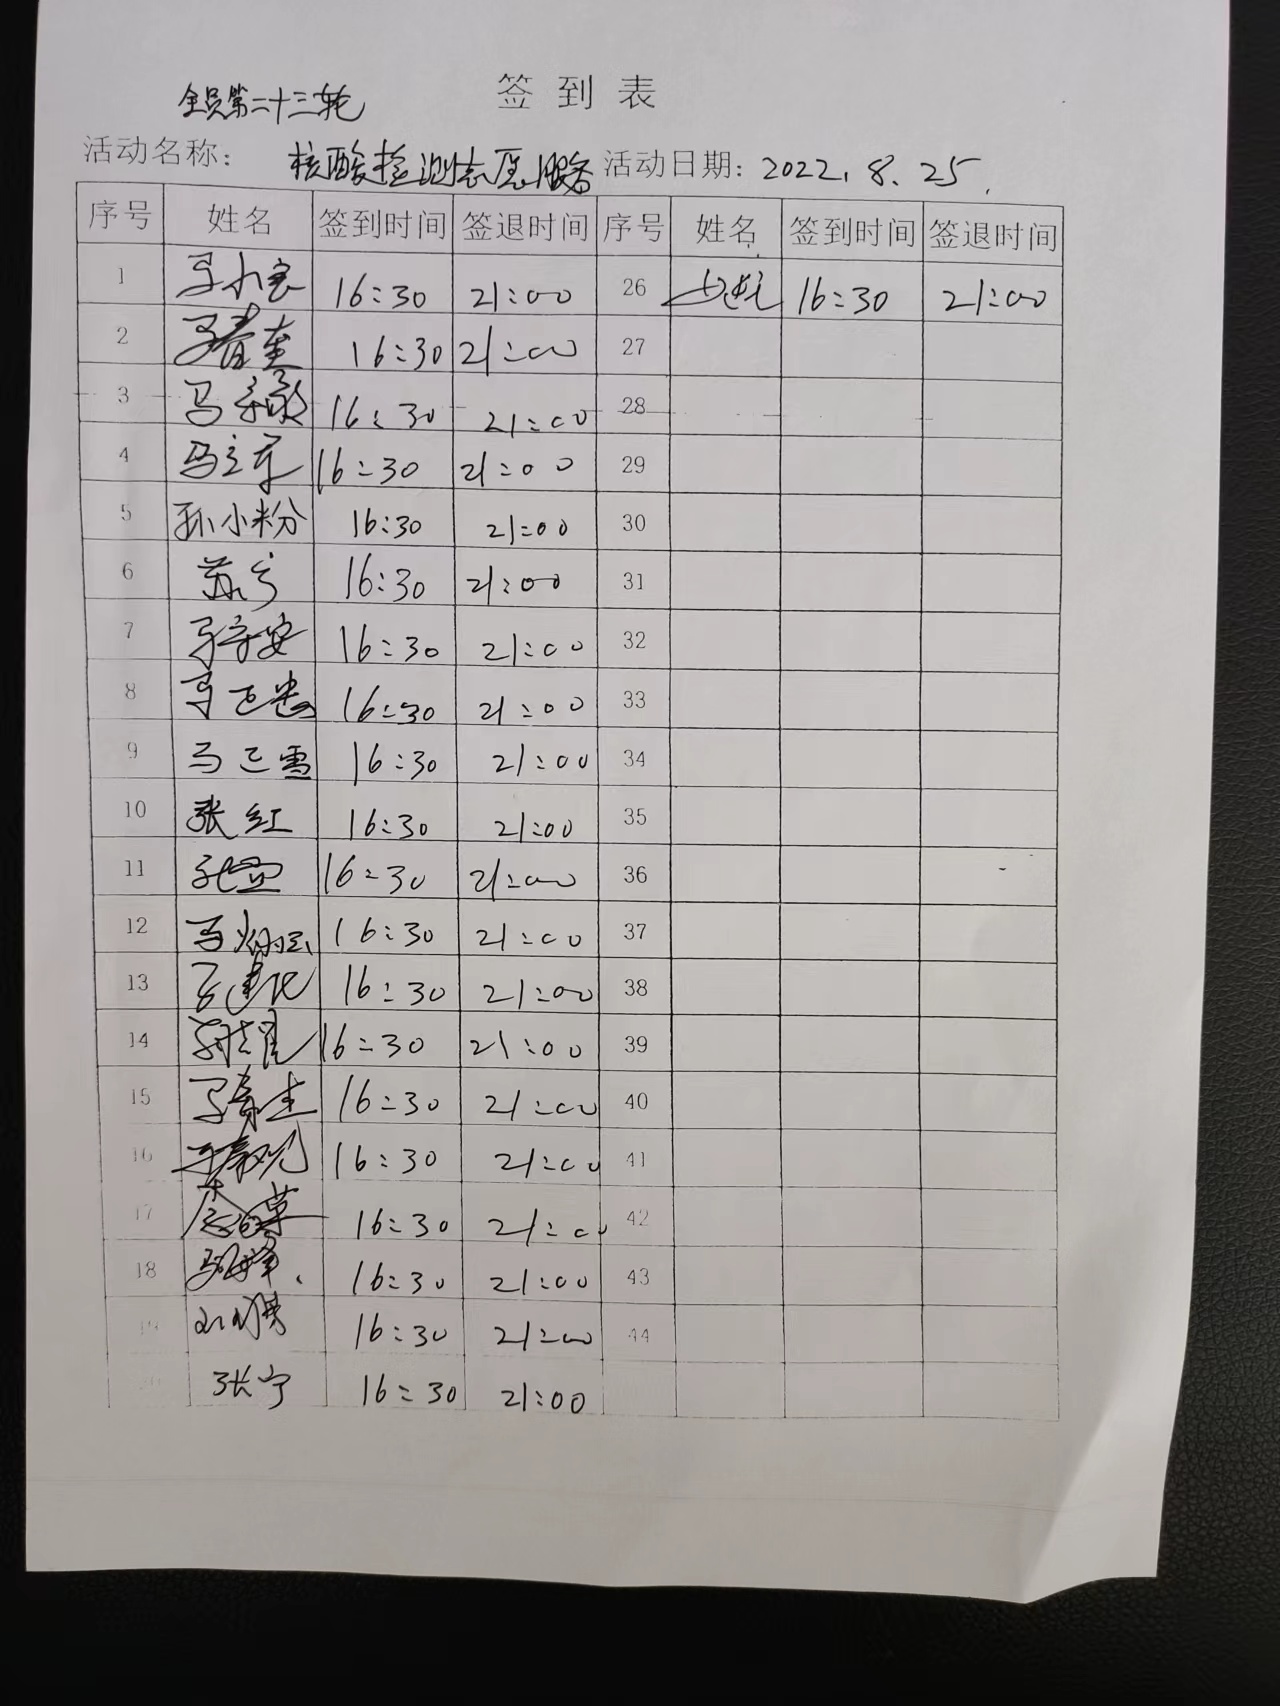 签到表
全员第二十三轮
活动名称: 核酸检测志愿服务 活动日期: 2022.8.25.
序号 姓名 签到时间 签退时间 序号 姓名 签到时间 签退时间
1 16:30 21:00 26 16:30 21:00
2 马春奎 16:30 21:00 27
3 马 16:30 21:00 28
4 马立军 16:30 21:00 29
5 孙小粉 16:30 21:00 30
6 苏宁 16:30 21:00 31
7 马守安 16:30 21:00 32
8 马正忠 16:30 21:00 33
9 马正雪 16:30 21:00 34
10 张红 16:30 21:00 35
11 16:30 21:00 36
12 马 16:30 21:00 37
13 马建化 16:30 21:00 38
14 16:30 21:00 39
15 马 16:30 21:00 40
16 16:30 21:00 41
17 16:30 21:00 42
18 16:30 21:00 43
19 16:30 21:00 44
20 张宁 16:30 21:00